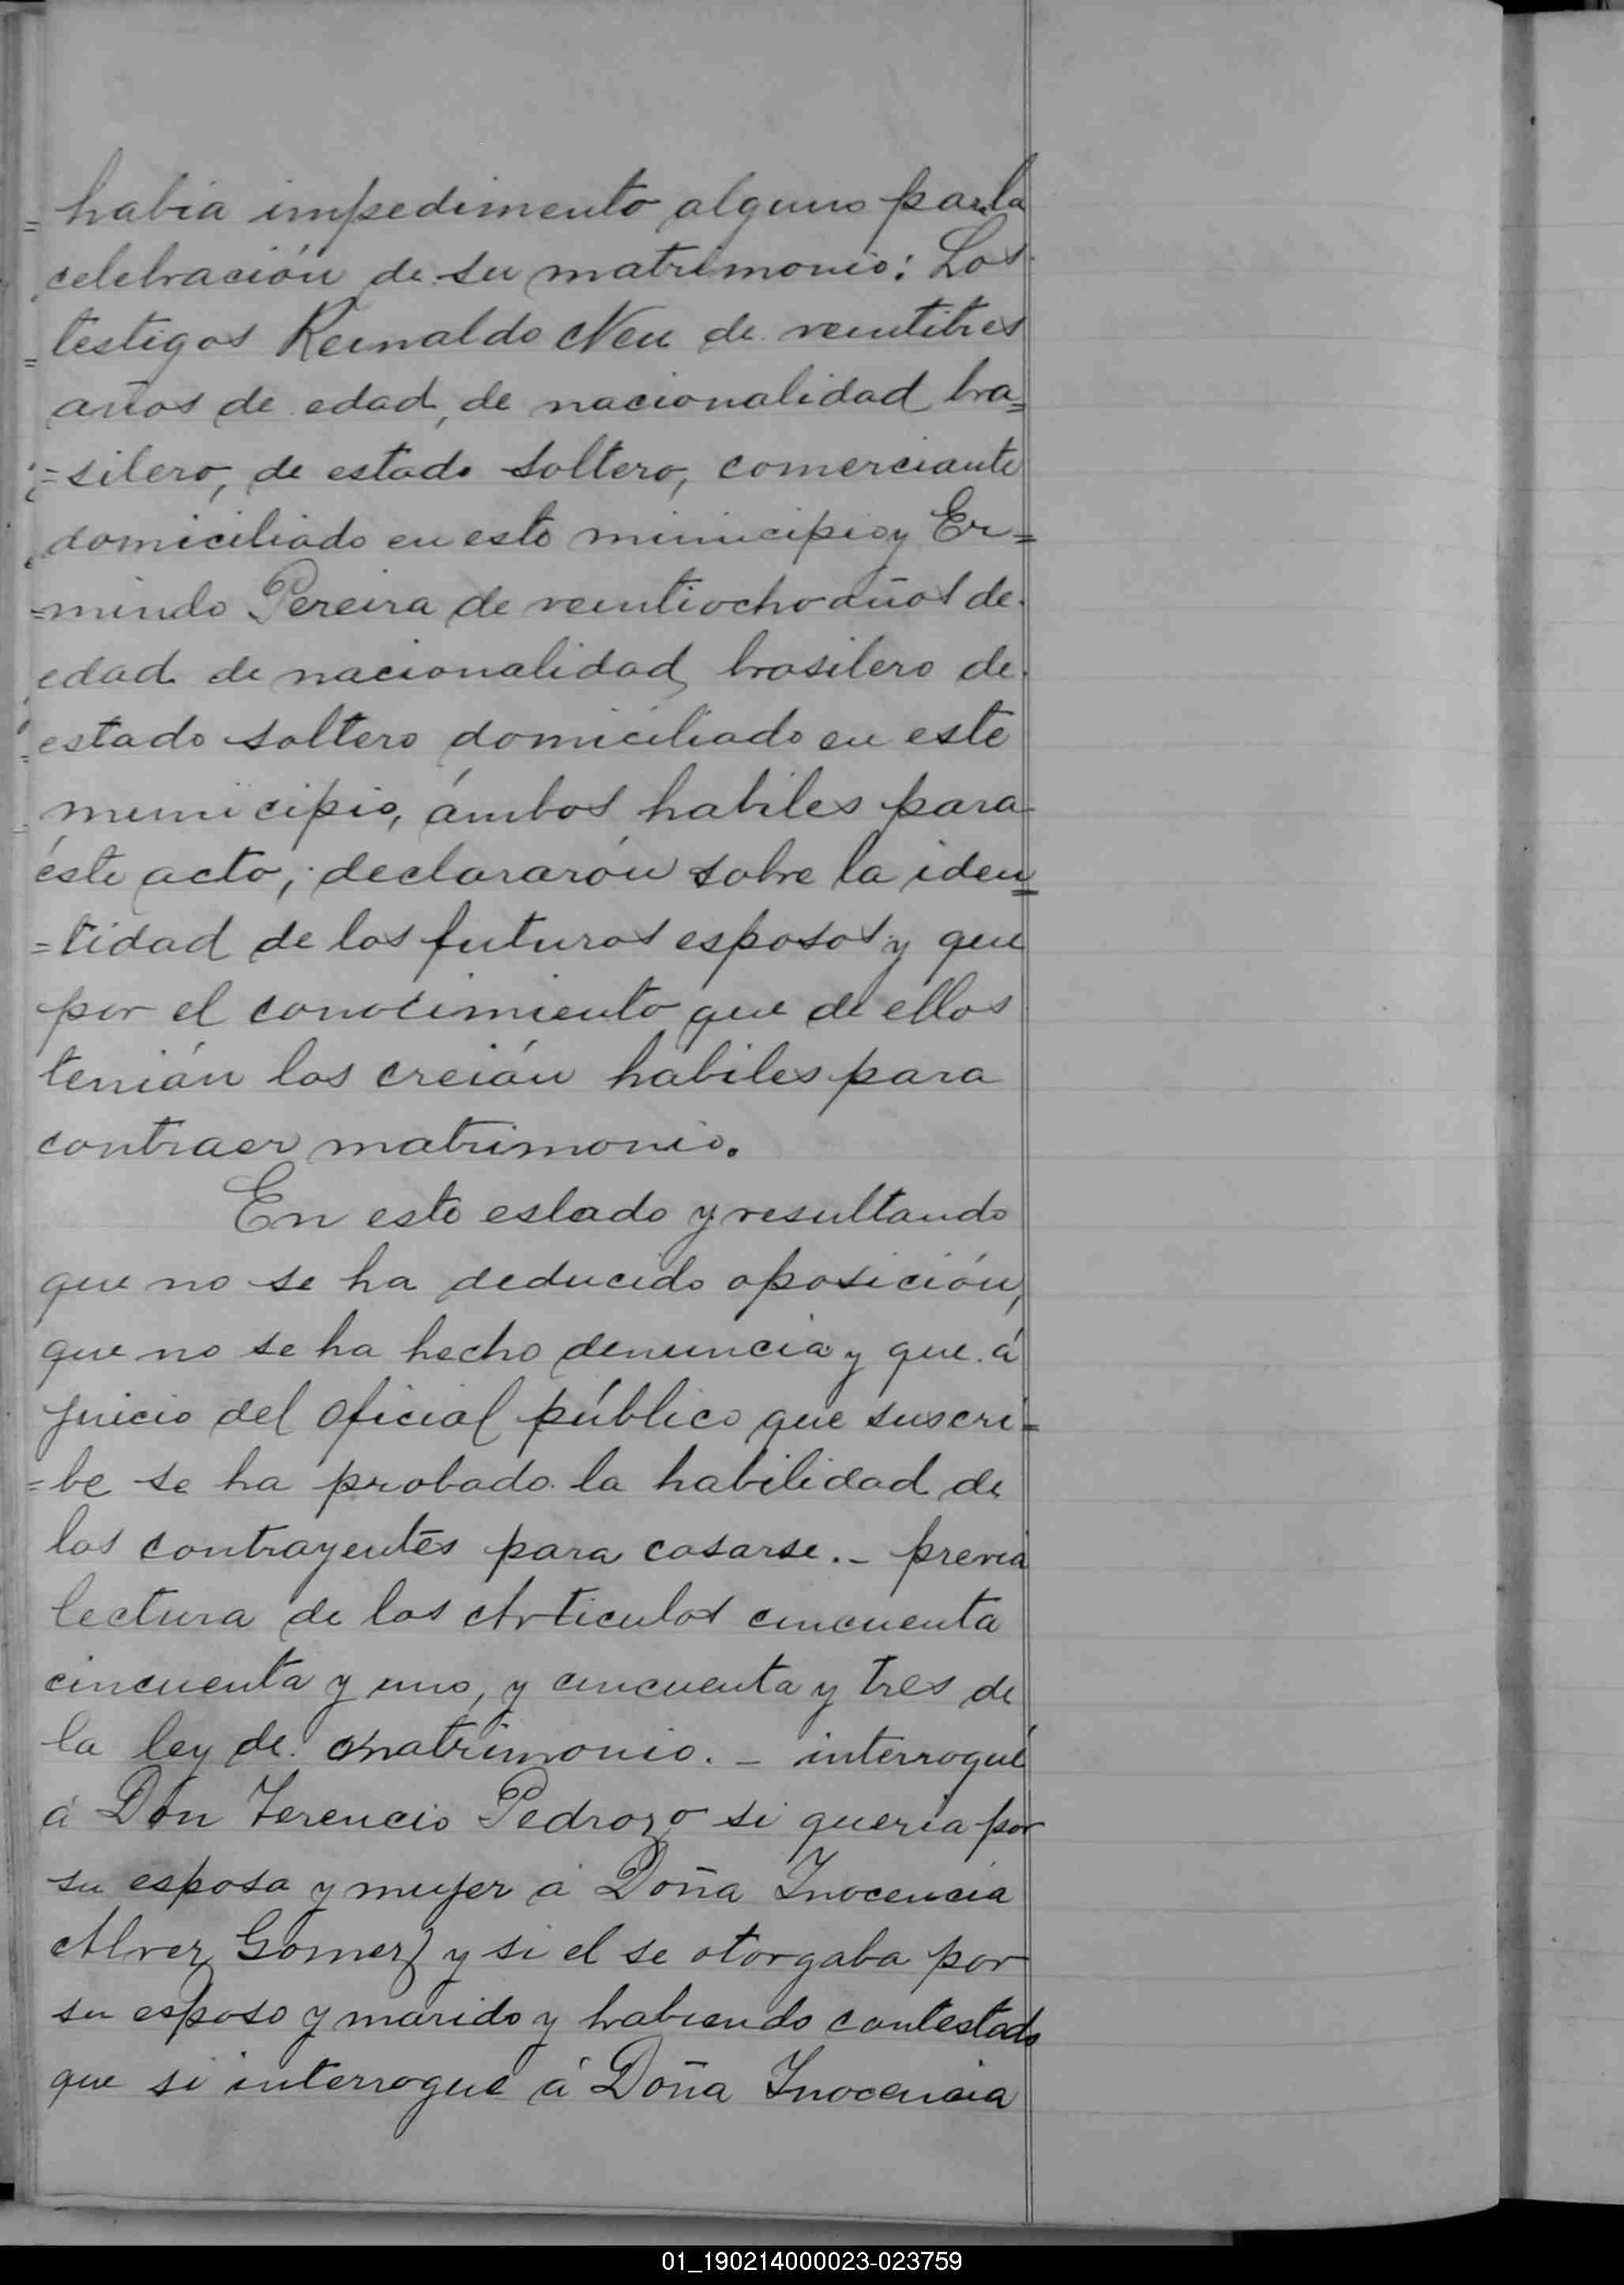 = habia impedimento alguno para la
celebración de su matrimonio: Los
= testigos Reinaldo Neu de veintitres
años de edad, de nacionalidad bra=
=silero, de estado soltero, comerciante
domiciliado en este municipio y Er=
=mindo Pereira de veintiocho años de
edad de nacionalidad brasilero de
estado soltero domiciliado en este
municipio, ámbos habiles para
éste acto, declararón sobre la iden=
=tidad de los futuros esposos y que
por el conocimiento que de ellos
tenián los creián hábiles para
contraer matrimonio.
En este estado y resultando
que no se ha deducido oposición,
que no se ha hecho denuncia y que á
juicio del oficial público que suscri=
=be se ha probado la habilidad de
los contrayentes para casarse. - previa
lectura de los Articulos cincuenta
cincuenta y uno, y cincuenta y tres de
la ley de matrimonio. - interrogué
á Don Terencio Pedrozo si queria por
su esposa y mujer á Doña Inocencia
Alvez Gomez y si el se otorgaba por
su esposo y marido y habiendo contestado
que si interrogué á Doña Inocencia
01_190214000023-023759